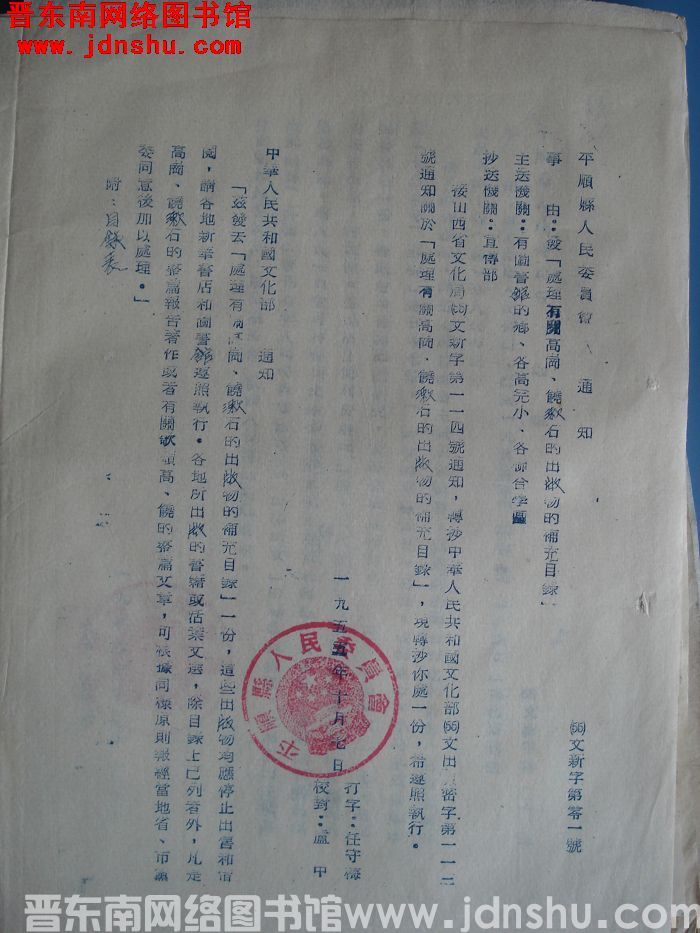 晋东南网络图书馆
www.jdnshu.com
平順縣人民委員會 通知
(55)文新字第零一號
事由：發「處理有關高崗、饒漱石的出版物的補充目録」
主送機關：有圖書館的鄉、各高完小、各聯合学區
抄送機關：宣傳部
接山西省文化局(55)文新字第一一四號通知，轉抄中華人民共和國文化部(55)文出 密字第一一二
號通知關於「處理有關高崗．饒漱石的出版物的補充目録」，現轉抄你處一份，希遵照執行。
一九五五年十月七日
打字：任守梅
校對：盧甲
平順縣人民委員會
中華人民共和國文化部 通知
「兹發去「處理有關高崗、饒漱石的出版物的補充目録」一份，這些出版物均應停止出售和借
閱，請各地新華書店和圖書館遵照執行。各地所出版的書籍或活葉文選，除目録上已列者外，凡是
高崗、饒漱石的專篇報告著作或者有關歌頌高、饒的專篇文章，可根據同樣原則報經當地省、市黨
委同意後加以處理。」
附：目録表
晋东南网络图书馆 www.jdnshu.com